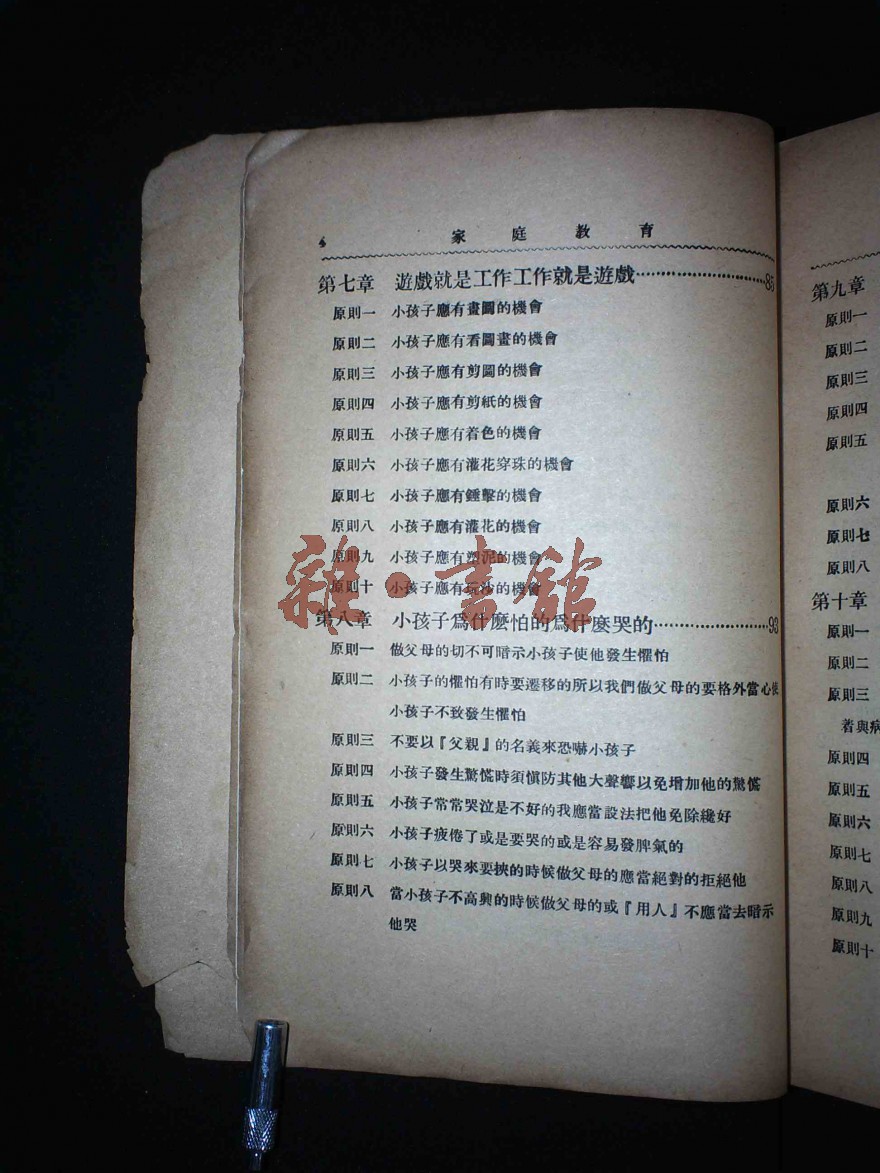 家庭教育
第七章 遊戲就是工作工作就是遊戲…………………85
原則一 小孩子應有畫圖的機會
原則二 小孩子應有看圖畫的機會
原則三 小孩子應有剪圖的機會
原則四 小孩子應有剪紙的機會
原則五 小孩子應有着色的機會
原則六 小孩子應有灌花穿珠的機會
原則七 小孩子應有錘擊的機會
原則八 小孩子應有灌花的機會
原則九 小孩子應有塑泥的機會
原則十 小孩子應有玩沙的機會
第八章 小孩子爲什麼怕的爲什麼哭的…………………93
原則一 做父母的切不可暗示小孩子使他發生懼怕
原則二 小孩子的懼怕有時要遷移的所以我們做父母的要格外當心使
小孩子不致發生懼怕
原則三 不要以『父親』的名義來恐嚇小孩子
原則四 小孩子發生驚慌時須愼防其他大聲響以免增加他的驚慌
原則五 小孩子常常哭泣是不好的我應當設法把他免除纔好
原則六 小孩子疲倦了或是要哭的或是容易發脾氣的
原則七 小孩子以哭來要挾的時候做父母的應當絕對的拒絕他
原則八 當小孩子不高興的時候做父母的或『用人』不應當去暗示
他哭
雜·書館
第九章
原則一
原則二
原則三
原則四
原則五
原則六
原則七
原則八
第十章
原則一
原則二
原則三
著與病
原則四
原則五
原則六
原則七
原則八
原則九
原則十